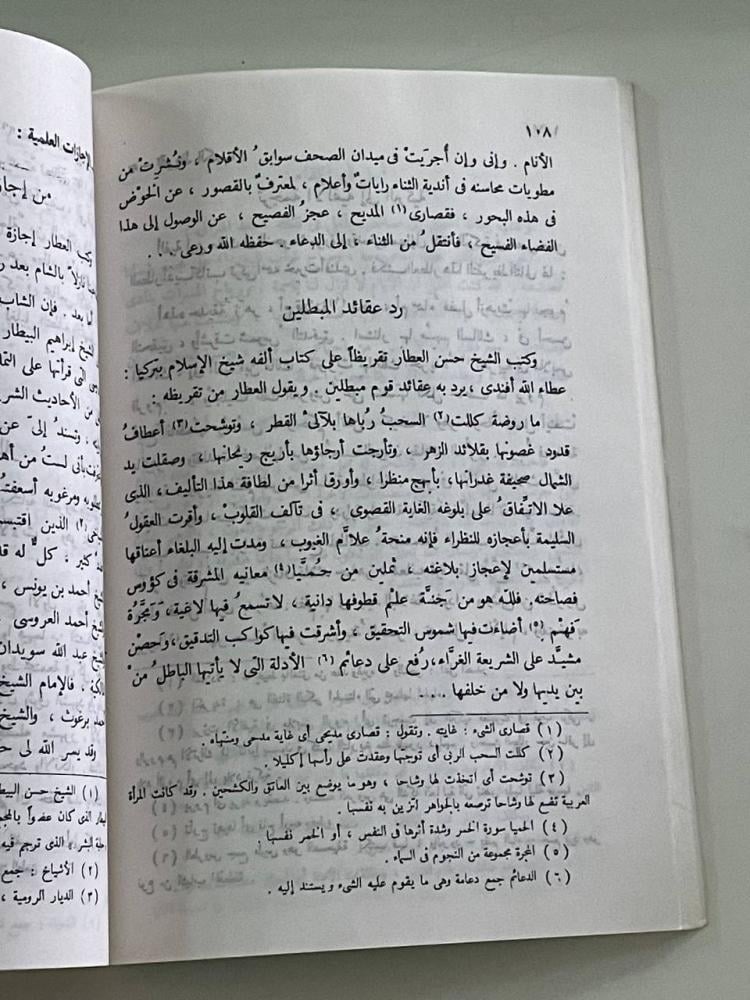 ١٠٨
الأنام . وإنى وإن أجريَتْ فى ميدان الصحف سوابقُ الأقلام ، ونُشرتْ من
مطويات محاسنه فى أندية الثناء راياتٌ وأعلام ، لمعترفٌ بالقصور ، عن الخوْض
فى هذه البحور ، فقصارى (١) المديح ، عجزُ الفصيح ، عن الوصول إلى هذا
الفضاء الفسيح ، فأنتقلُ من الثناء ، إلى الدعاء . حفظه الله ورعى . . .
رد عقائد المبطلين
وكتب الشيخ حسن العطار تقريظاً على كتاب ألفه شيخ الإسلام بتركيا :
عطاء الله أفندى ، يرد به عقائد قوم مبطلين . ويقول العطار من تقريظه :
ما روضة كللت (٢) السحبُ رُباها بلآلئ القطر ، وتوشحت (٣) أعطافُ
قدود غصونها بقلائد الزهر ، وتأرجت أرجاؤها بأريج ريحانها ، وصقلت يد
الشمال صحيفة غدرانها ، بأبهج منظرا ، وأورق أثرا من لطافة هذا التأليف ، الذى
علا الاتفاقُ على بلوغه الغاية القصوى ، فى تآلف القلوب ، وأقرت العقولُ
السليمة بأعجازه للنظراء فإنه منحةُ علاَّم الغيوب ، ومدت إليه البلغاء أعناقها
مستسلمين لإعجاز بلاغته ، ثملين من حُميَّا (٤) معانيه المشرقة فى كؤوس
فصاحته . فلله هو من جَنَّة علْم قطوفها دانية ، لا تسمعُ فيها لاغية ، وَمَجَرَّة
فَهْم (٥) أضاءت فيها شموس التحقيق ، وأشرقت فيها كواكب التدقيق ، وحصن
مشيَّد على الشريعة الغرَّاء ، رُفع على دعائم (٦) الأدلة التى لا يأتيها الباطلُ منْ
بين يديها ولا من خلفها . . . .
(١) قصارى الشىء : غايته . وتقول : قصارى مديحى أى غاية مدحى ومنتهاه .
(٢) كللت السحب الربى أى توجتها وعقدت على رأسها إكليلا .
(٣) توشحت أى اتخذت لها وشاحا ، وهو ما يوضع بين العاتق والكشحين . وقد كانت المرأة
العربية تضع لها وشاحا ترصعه بالجواهر لتزين به نفسها .
(٤) الحميا سورة الخمر وشدة أثرها فى النفس ، أو الخمر نفسها .
(٥) المجرة مجموعة من النجوم فى السماء .
(٦) الدعائم جمع دعامة وهى ما يقوم عليه الشىء ويستند إليه .
الإجازات العلمية :
من إجاز
وكتب العطار إجازة
بالشام بعد
أما بعد . فإن الشاب
الشيخ إبراهيم البيطار
التى قرأتها على
من الأحاديث
وتسند إلىّ عن
بأنى لستُ من أهـ
ومرغوبه أسعفت
(٢) الذين اقتبس
كثير . كلٌّ له
أحمد بن يونس ،
أحمد العروسى
عبد الله سويدان
فالإمام الشيخ
برغوث ، والشيخ
وقد يسر الله لى
(١) الشيخ حسن البيط
الذى كان عضواً
البشر ، الذى ترجم فيه
(٢) الأشياخ : جمع
(٣) الديار الرومية ،